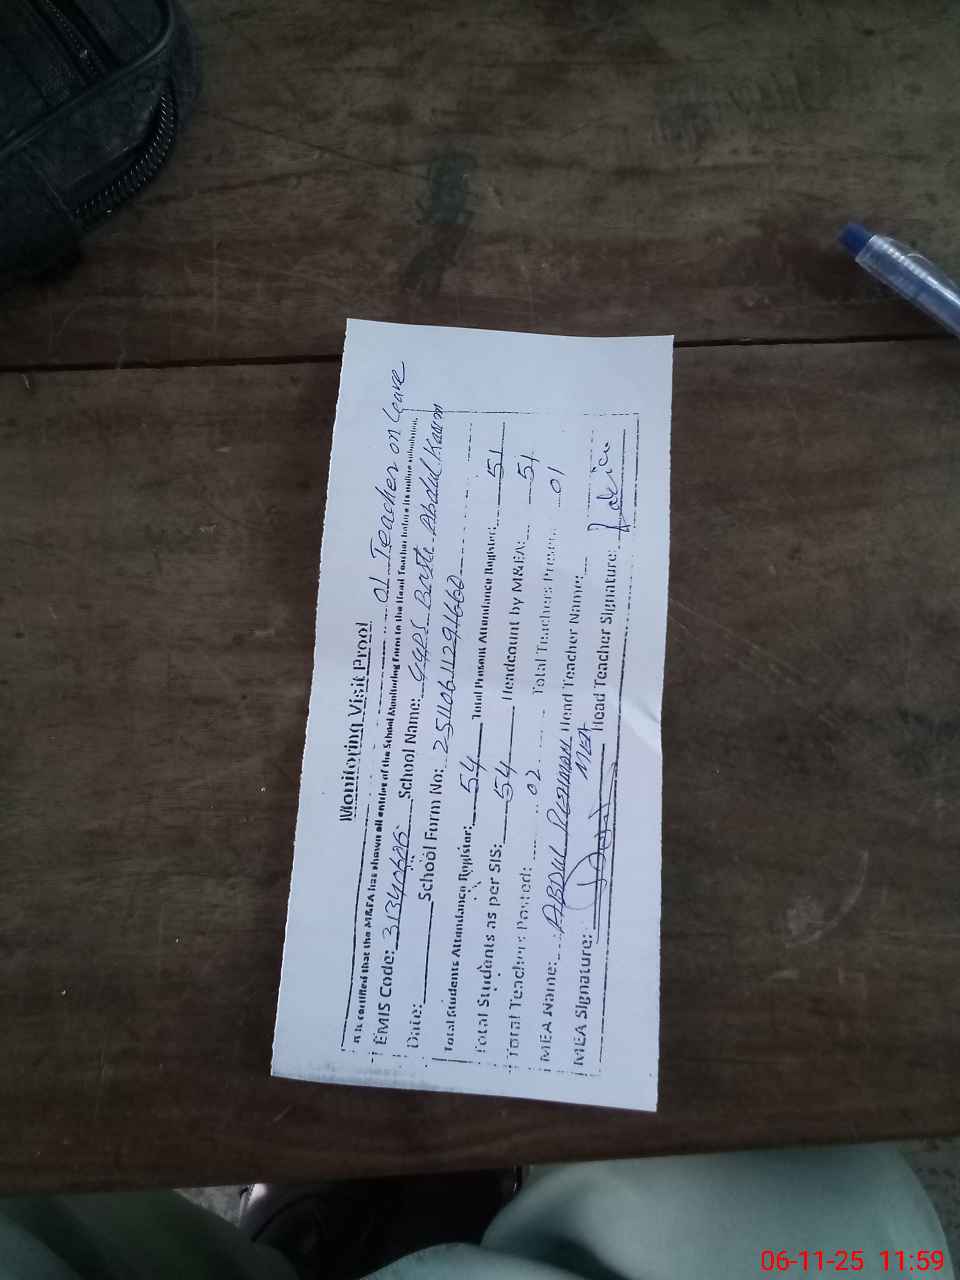 01 Teacher on leave
Monitoring Visit Proof
It is certified that the M&EA has shown all entries of the School Monitoring Form to the Head Teacher before its online submission.
EMIS Code: 31340686 School Name: GGPS Basti Abdul Karim
Date: School Form No: 251106112916660
Total Students Attendance Register: 54 Total Present Attendance Register: 51
Total Students as per SIS: 54 Headcount by M&EA: 51
Total Teachers Posted: 02 Total Teachers Present: 01
MEA Name: ABDUL REHMAN Head Teacher Name:
MEA
MEA Signature: Head Teacher Signature:
06-11-25 11:59